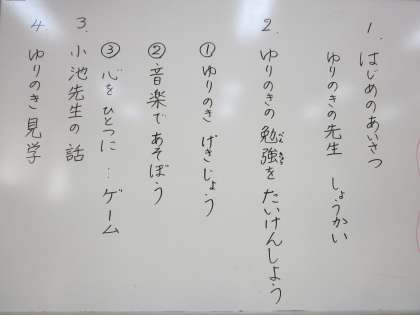 1. はじめのあいさつ
ゆりのきの先生 しょうかい
2. ゆりのきの勉強をたいけんしよう
べんきょう
① ゆりのき げきじょう
② 音楽であそぼう
③ 心をひとつに…ゲーム
3. 小池先生の話
4. ゆりのき見学